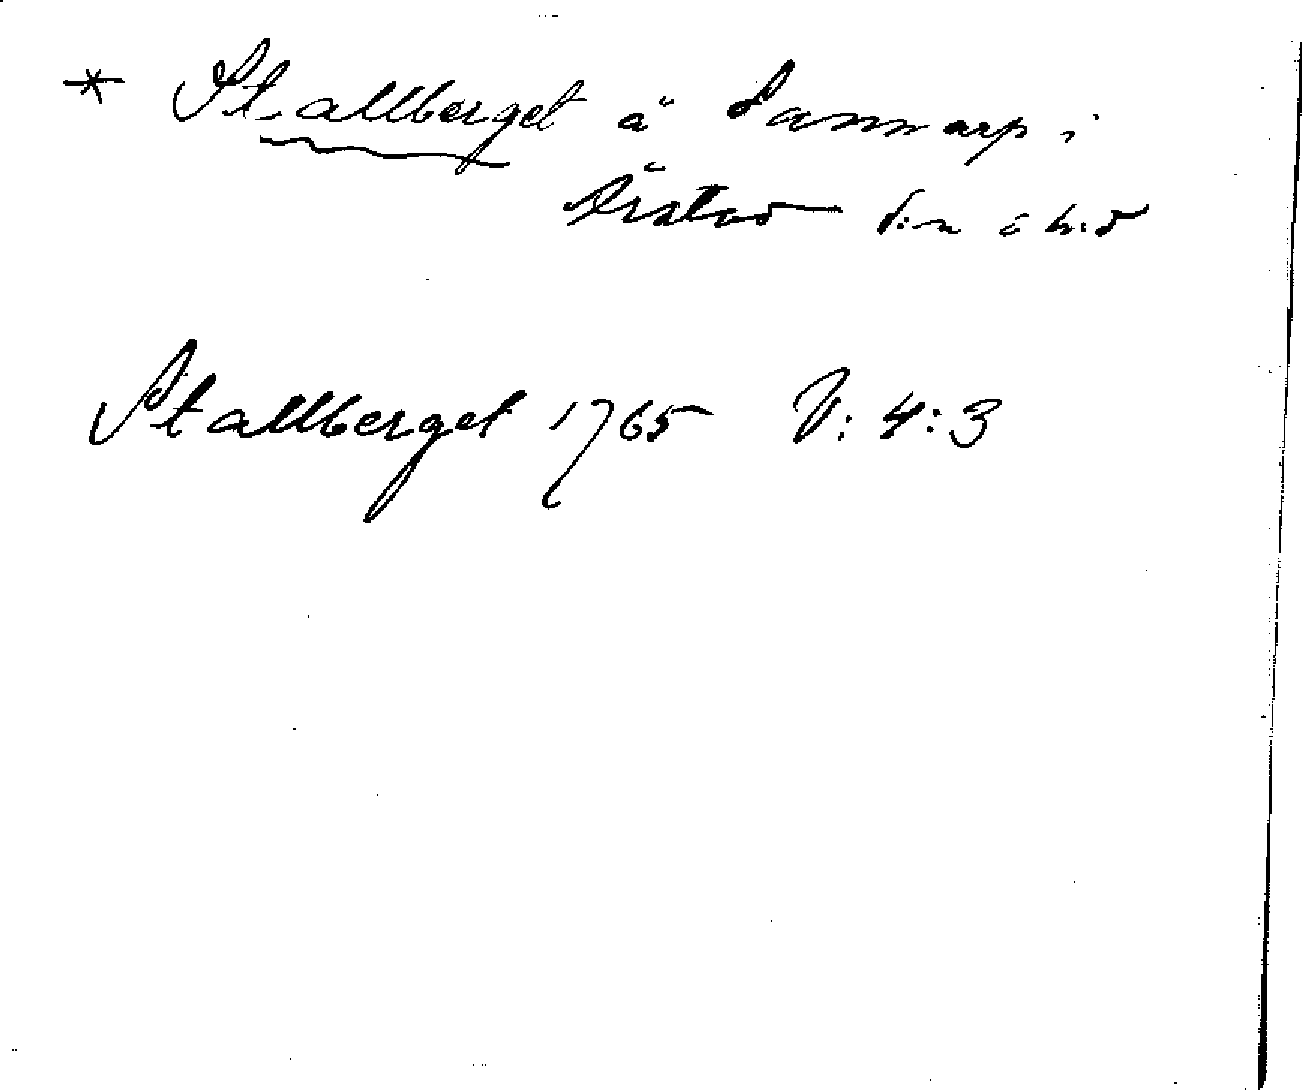 * Stallberget å Sannarp i
Årstad s:n o h:d
Stallberget 1765 V: 4:3